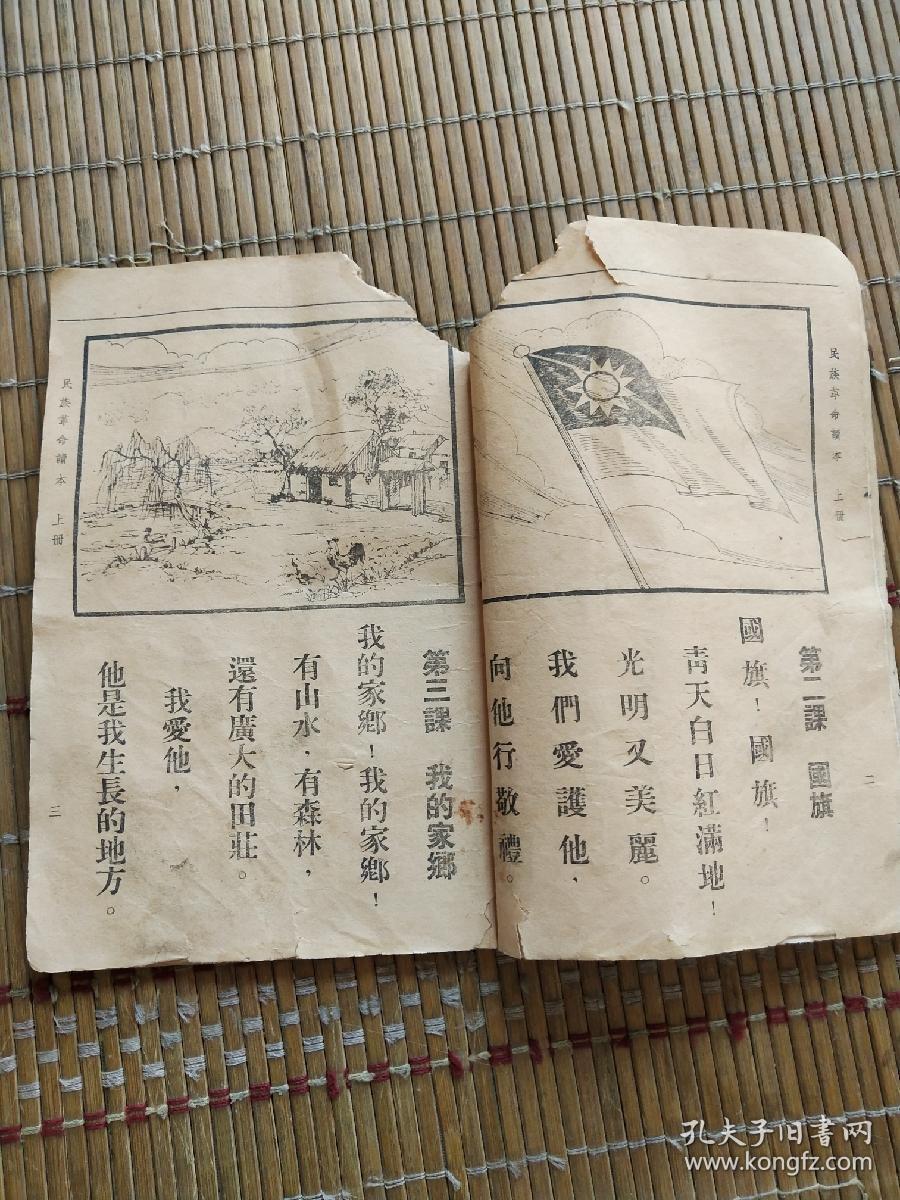 民族革命讀本 上冊
二
第二課 國旗
國旗！國旗！
青天白日紅滿地！
光明又美麗。
我們愛護他，
向他行敬禮。
第三課 我的家鄉
我的家鄉！我的家鄉！
有山水，有森林，
還有廣大的田莊。
我愛他，
他是我生長的地方。
民族革命讀本 上冊
三
孔夫子旧书网
www.kongfz.com